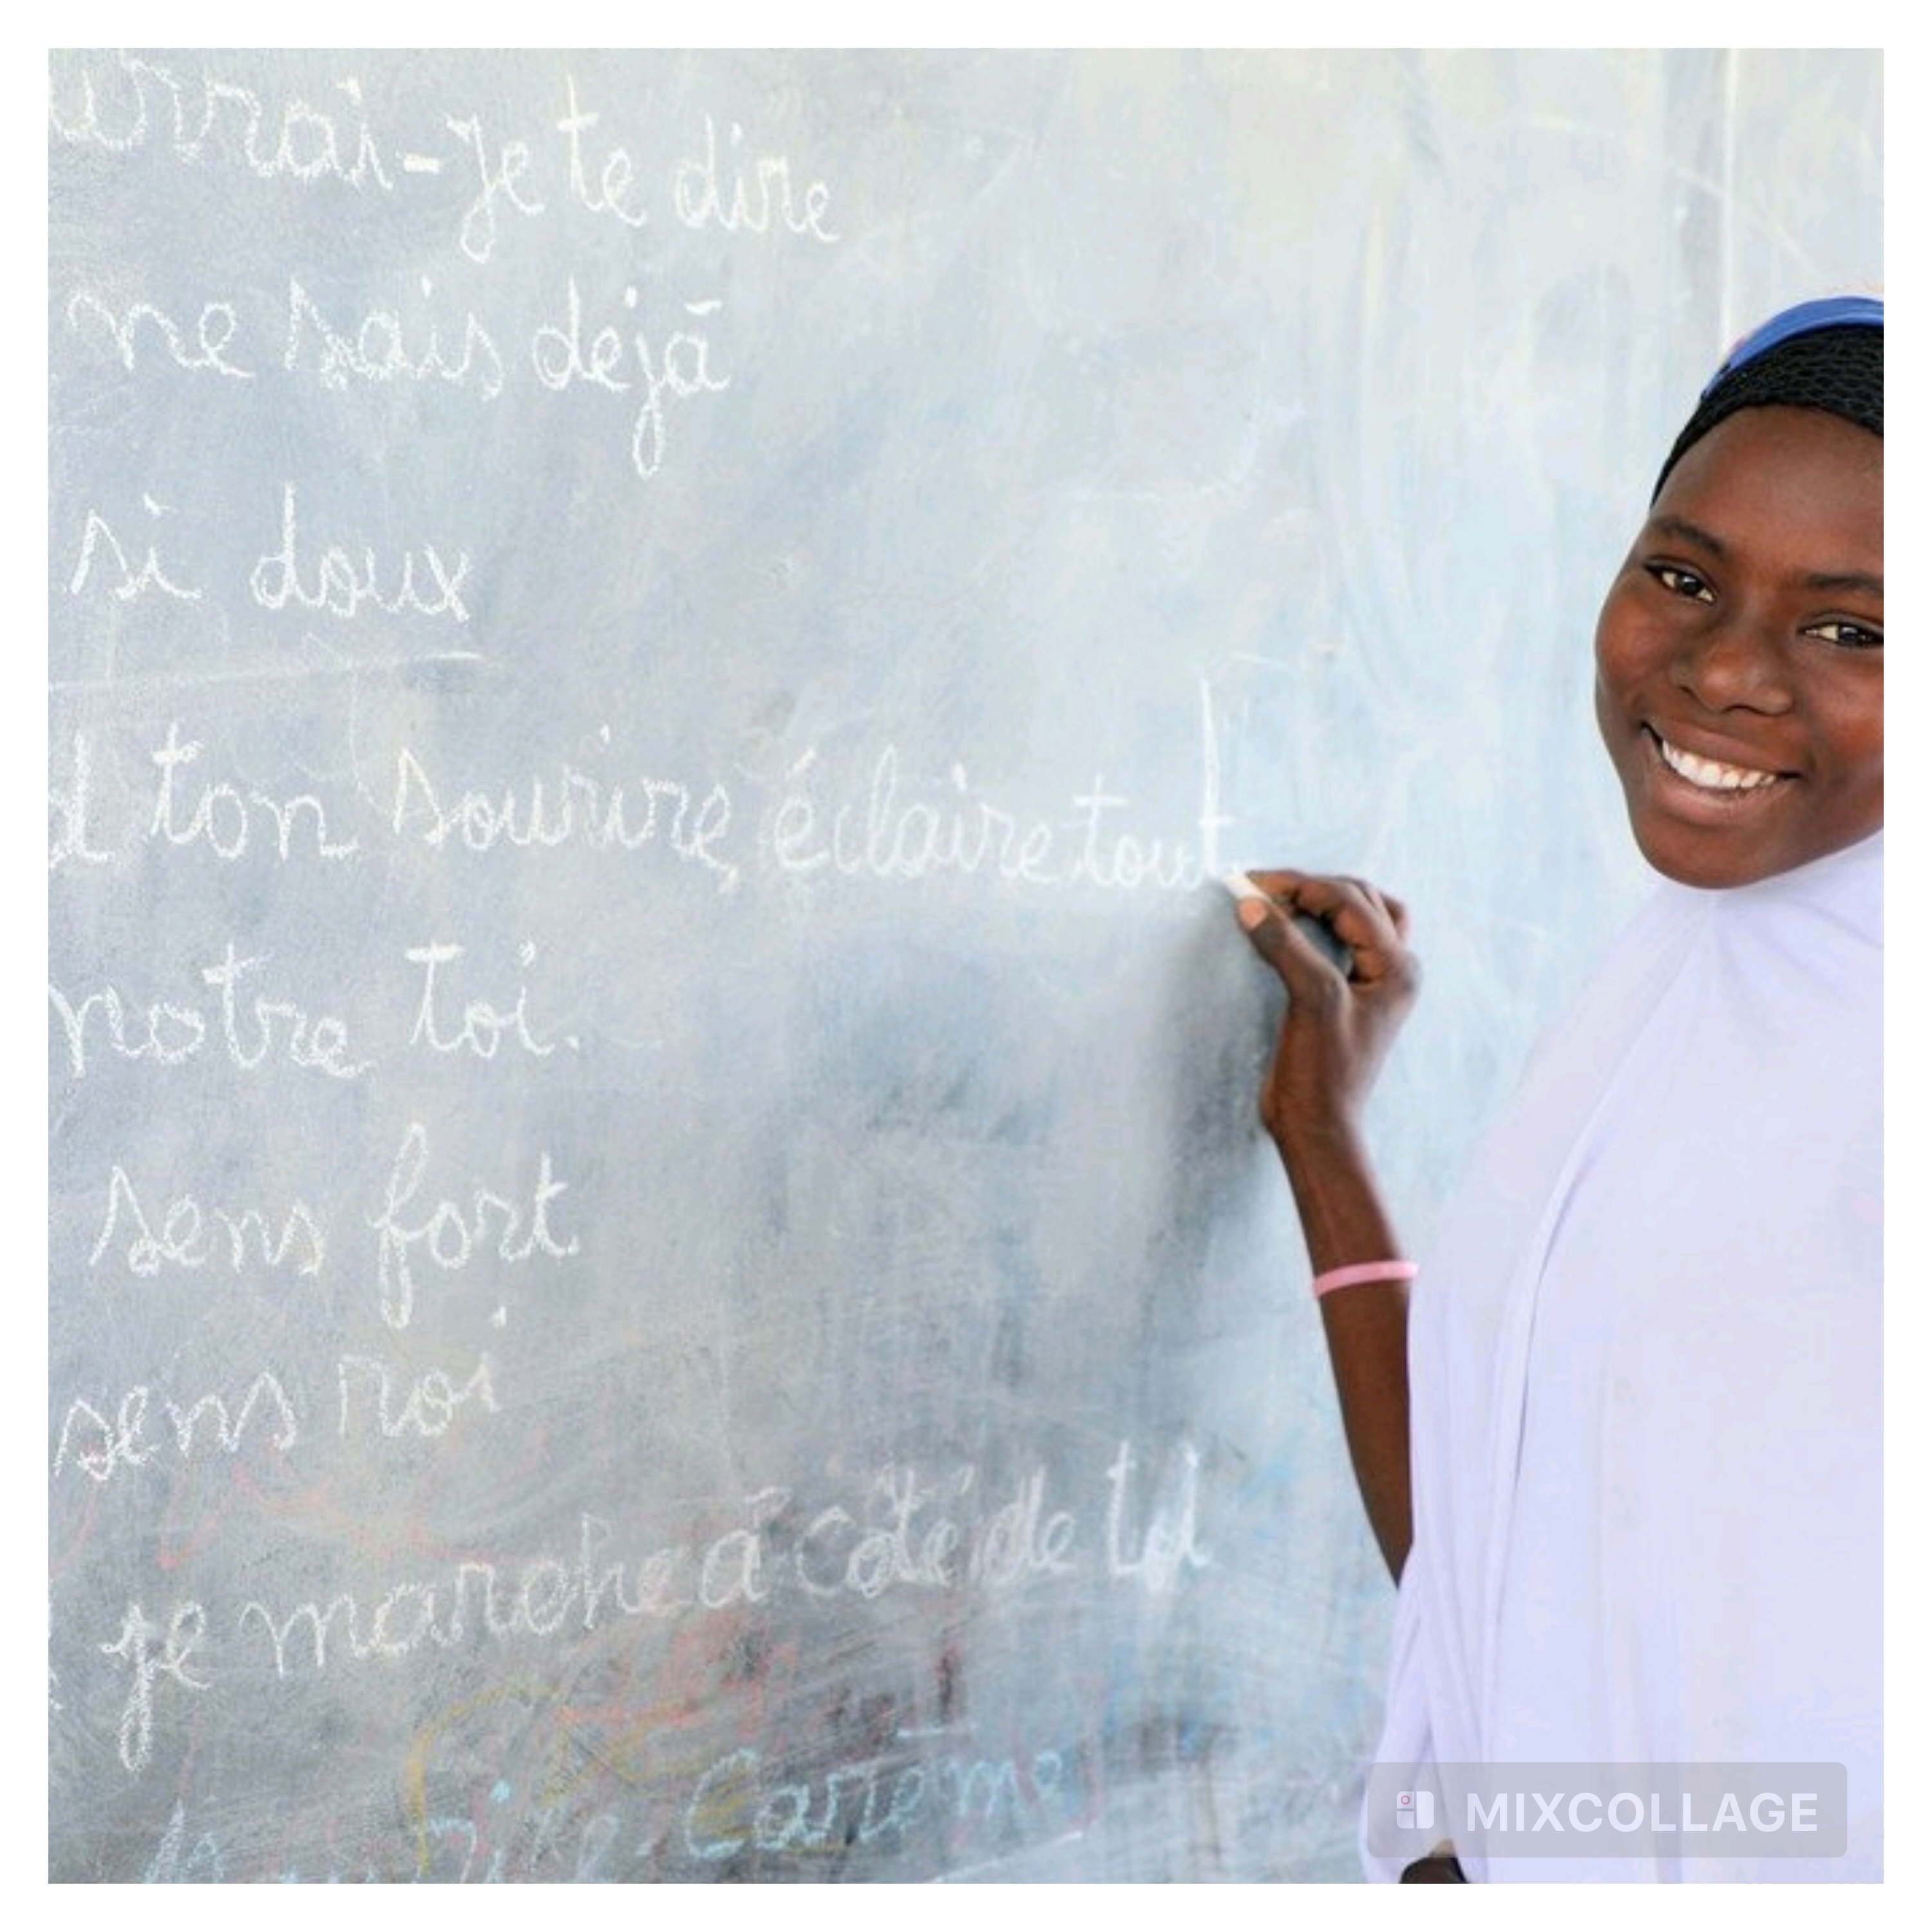 urrai-je te dire
ne sais dejā
si doux
d ton sourire, éclaire tout
notre toi.
sens fort.
sens roi
je marche ā côté de toi
Carême
MIXCOLLAGE